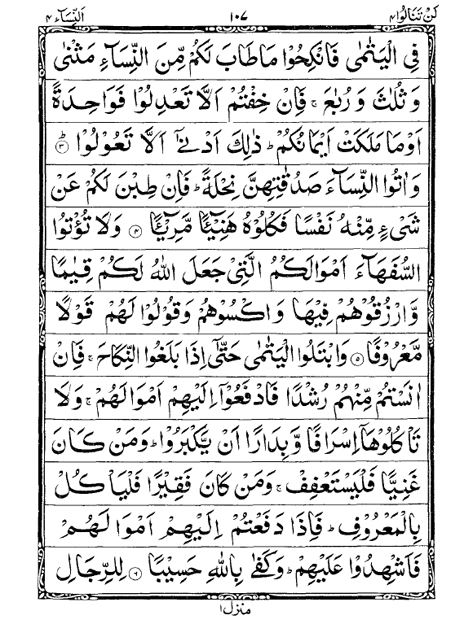 لَنْ تَنَالُوا ٤ ١٠٧ اَلنِّسَآء ٤
فِی الْیَتٰمٰی فَانْكِحُوْا مَا طَابَ لَكُمْ مِّنَ النِّسَآءِ مَثْنٰی
وَ ثُلٰثَ وَ رُبٰعَ ۚ فَاِنْ خِفْتُمْ اَلَّا تَعْدِلُوْا فَوَاحِدَةً
اَوْ مَا مَلَكَتْ اَیْمَانُكُمْ ؕ ذٰلِكَ اَدْنٰۤی اَلَّا تَعُوْلُوْا ؕ۳
وَ اٰتُوا النِّسَآءَ صَدُقٰتِهِنَّ نِحْلَةً ؕ فَاِنْ طِبْنَ لَكُمْ عَنْ
شَیْءٍ مِّنْهُ نَفْسًا فَكُلُوْهُ هَنِیْٓـًٔا مَّرِیْٓـًٔا ۴ وَ لَا تُؤْتُوا
السُّفَهَآءَ اَمْوَالَكُمُ الَّتِیْ جَعَلَ اللّٰهُ لَكُمْ قِیٰمًا
وَّ ارْزُقُوْهُمْ فِیْهَا وَ اكْسُوْهُمْ وَ قُوْلُوْا لَهُمْ قَوْلًا
مَّعْرُوْفًا ۵ وَ ابْتَلُوا الْیَتٰمٰی حَتّٰۤی اِذَا بَلَغُوا النِّكَاحَ ۚ فَاِنْ
اٰنَسْتُمْ مِّنْهُمْ رُشْدًا فَادْفَعُوْۤا اِلَیْهِمْ اَمْوَالَهُمْ ۚ وَ لَا
تَاْكُلُوْهَاۤ اِسْرَافًا وَّ بِدَارًا اَنْ یَّكْبَرُوْا ؕ وَ مَنْ كَانَ
غَنِیًّا فَلْیَسْتَعْفِفْ ۚ وَ مَنْ كَانَ فَقِیْرًا فَلْیَاْكُلْ
بِالْمَعْرُوْفِ ؕ فَاِذَا دَفَعْتُمْ اِلَیْهِمْ اَمْوَالَهُمْ
فَاَشْهِدُوْا عَلَیْهِمْ ؕ وَ كَفٰی بِاللّٰهِ حَسِیْبًا ۶ لِلرِّجَالِ
منزل ١